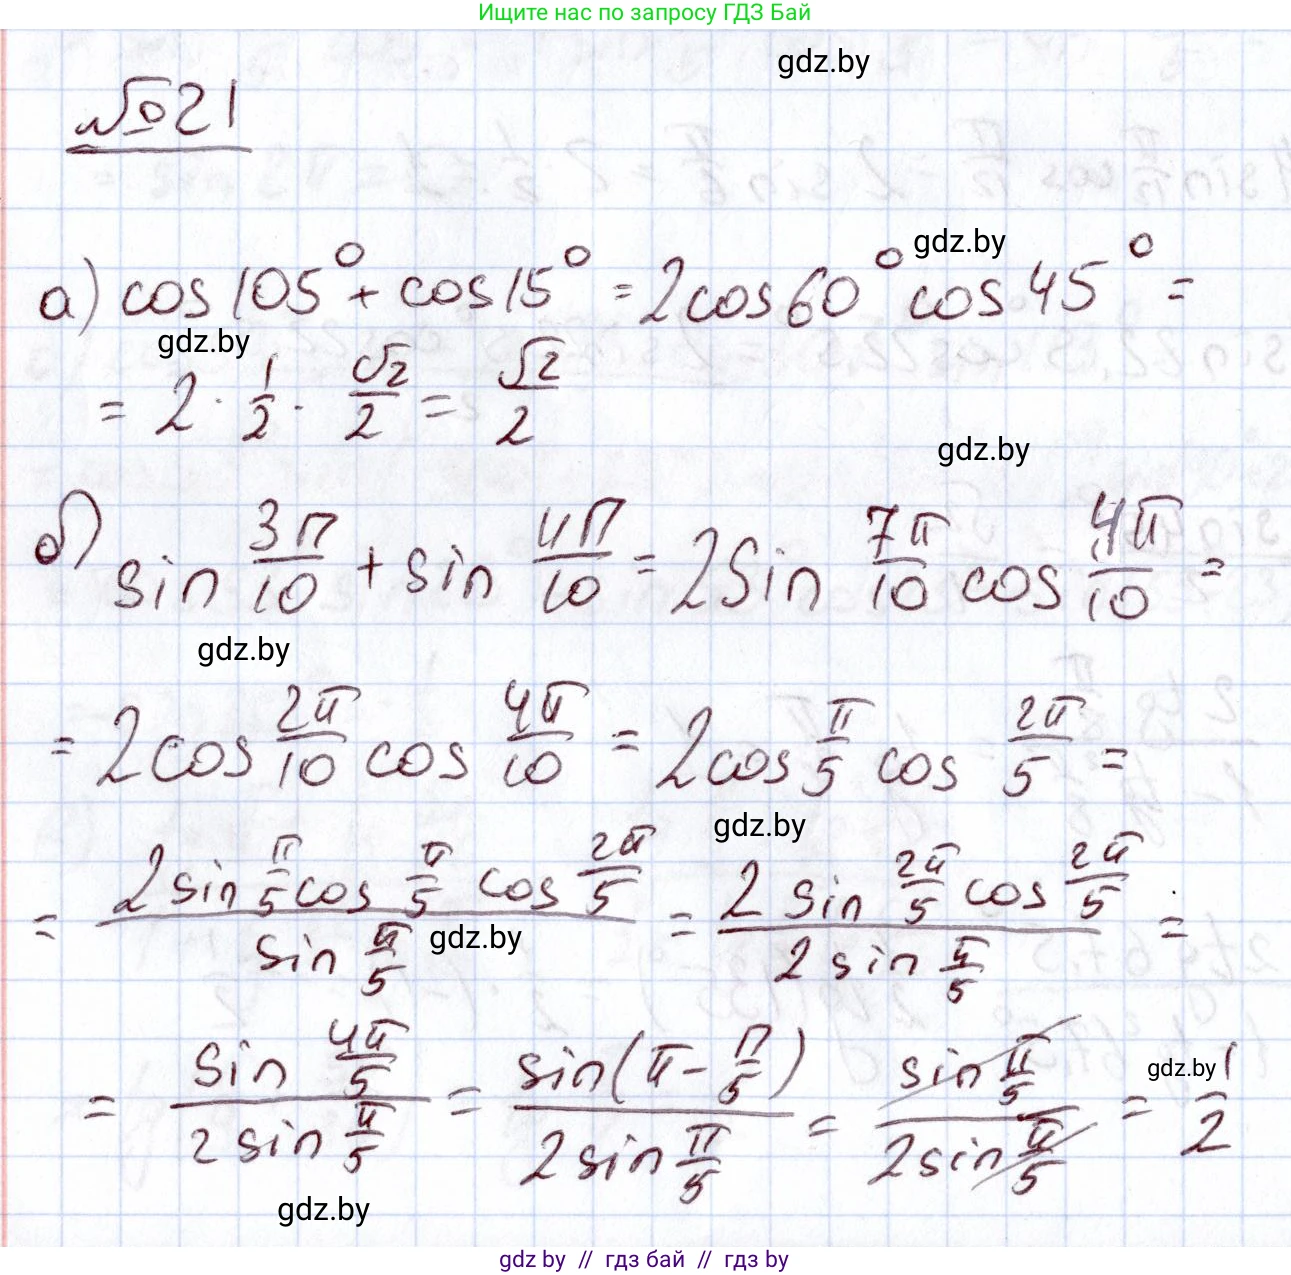 Ищите нас по запросу ГДЗ Бай
gdz.by
№21
gdz.by
а) cos 105° + cos 15° = 2cos 60° cos 45° =
gdz.by
= 2 · 1/2 · √2/2 = √2/2
gdz.by
б) sin 3π/10 + sin 4π/10 = 2 sin 7π/10 cos 4π/10 =
gdz.by
= 2 cos 2π/10 cos 4π/10 = 2 cos π/5 cos 2π/5 =
gdz.by
= (2 sin π/5 cos π/5 cos 2π/5)/(sin π/5) = (2 sin 2π/5 cos 2π/5)/(2 sin π/5) =
gdz.by
= (sin 4π/5)/(2 sin π/5) = (sin(π - π/5))/(2 sin π/5) = (sin π/5)/(2 sin π/5) = 1/2
gdz.by
gdz.by
gdz by // гдз бай // гдз by